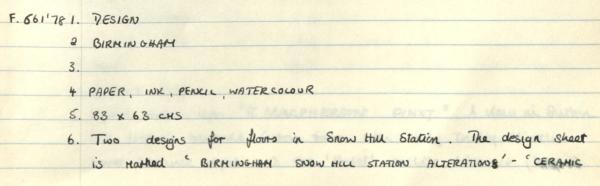 F.661'78 1. DESIGN
2 BIRMINGHAM
3.
4 PAPER, INK, PENCIL, WATERCOLOUR
5. 83 x 63 CMS
6. Two designs for floors in Snow Hill Station. The design sheet
is marked ' BIRMINGHAM SNOW HILL STATION ALTERATIONS' - 'CERAMIC